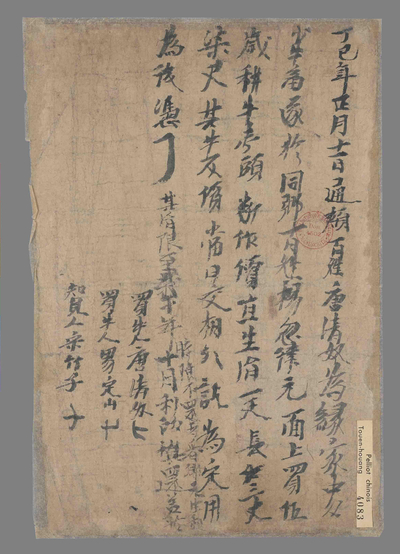 丁巳年正月十一日通頰百姓唐清奴為緣家中欠
少牛畜遂於同鄉百姓楊忽律元面上買伍
歲耕牛壹頭斷作價直生絹一疋長三丈
柒尺其牛及價當日交相分付訖為定用
為後憑
其絹限至戊午年十月利頭填還若於
時限不還者看鄉元生利
買牛人唐清奴
買牛人男定山
知見人宋竹子
Pelliot chinois
Touen-houang
4083